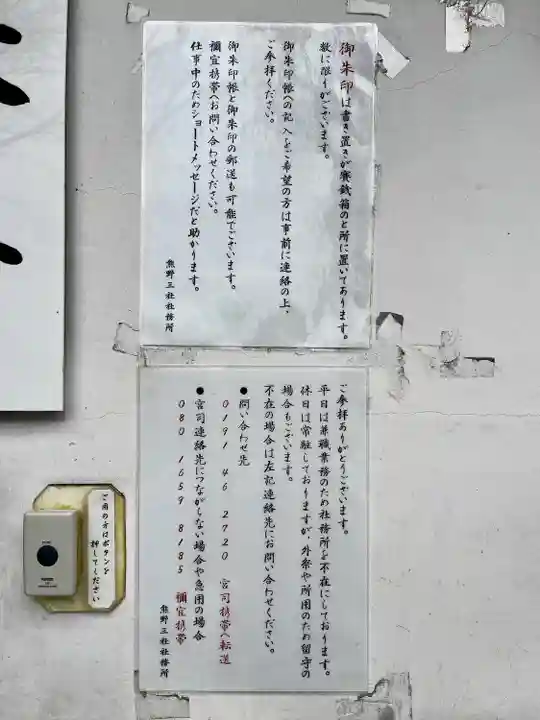 御朱印は書き置きが賽銭箱のと所に置いてあります。
数に限りがございます。
御朱印帳への記入をご希望の方は事前に連絡の上、
ご参拝ください。
御朱印帳と御朱印の郵送も可能でございます。
禰宜携帯へお問い合わせください。
仕事中のためショートメッセージだと助かります。
熊野三社社務所
ご参拝ありがとうございます。
平日は兼職業務のため社務所を不在にしております。
休日は常駐しておりますが、外祭や所用のため留守の
場合もございます。
不在の場合は左記連絡先にお問い合わせください。
●問い合わせ先
0191 46 2720 宮司携帯へ転送
●宮司連絡先につながらない場合や急用の場合
080 1659 8185 禰宜携帯
熊野三社社務所
ご用の方はボタンを
押してください